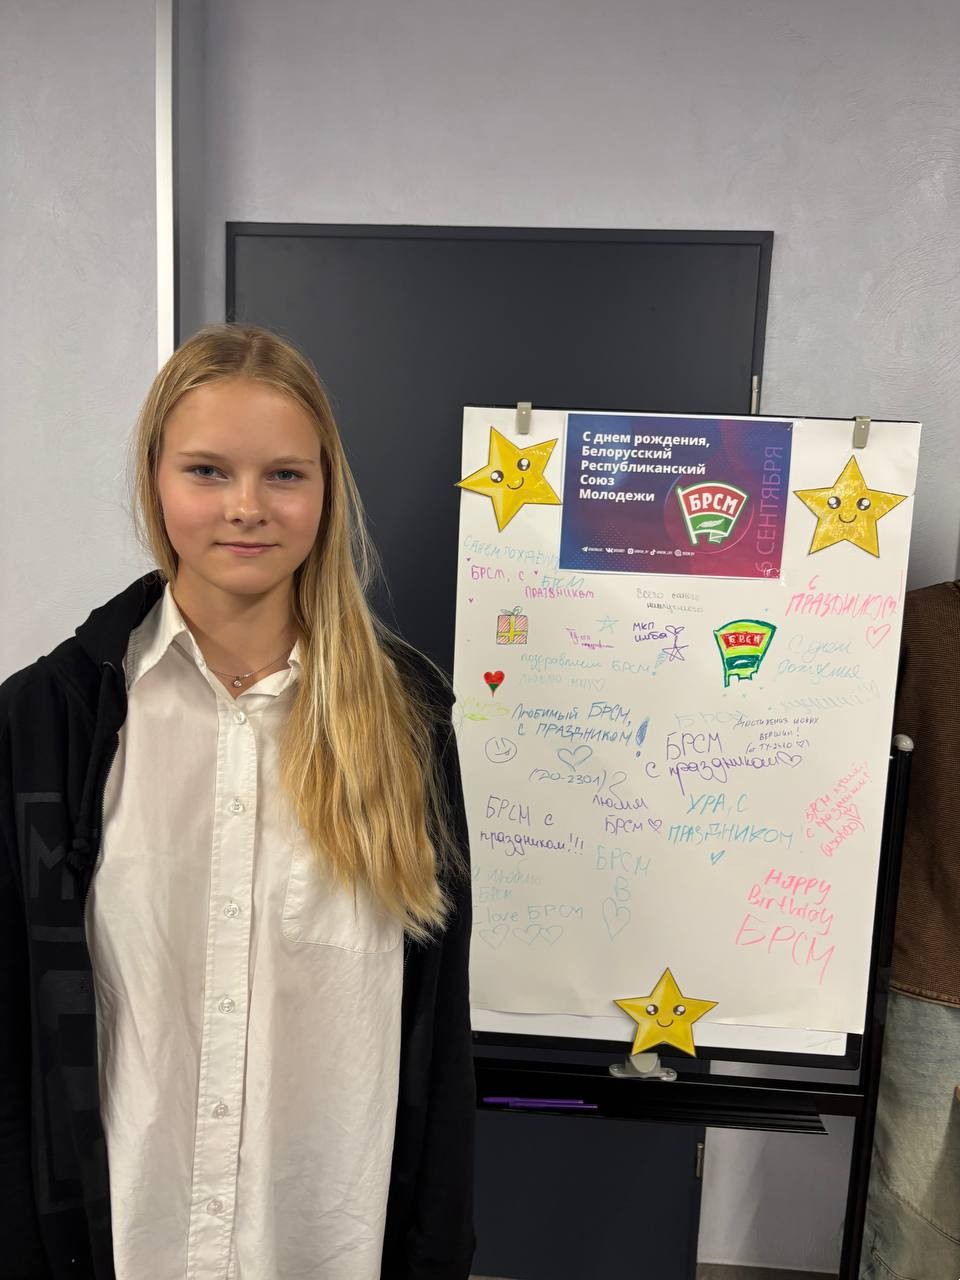 С днем рождения,
Белорусский
Республиканский
Союз
Молодежи
БРСМ
6 СЕНТЯБРЯ
С ДНЕМ РОЖДЕНИЯ
БРСМ
БРСМ, С
ПРАЗДНИКОМ
Всего самого
наилучшего
С
ПРАЗДНИКОМ!
МКП
БРСМ
С днём
рождения
поздравляем БРСМ!
люблю
Любимый БРСМ,
С ПРАЗДНИКОМ!
БРСМ
Достижения новых
вершин!
БРСМ
с праздником
(ДО-2301)
Любим
БРСМ
УРА, С
ПРАЗДНИКОМ!
БРСМ с
праздником!!!
БРСМ
с праздником!
БРСМ
В
Я люблю
БРСМ
I love БРСМ
Happy
Birthday
БРСМ